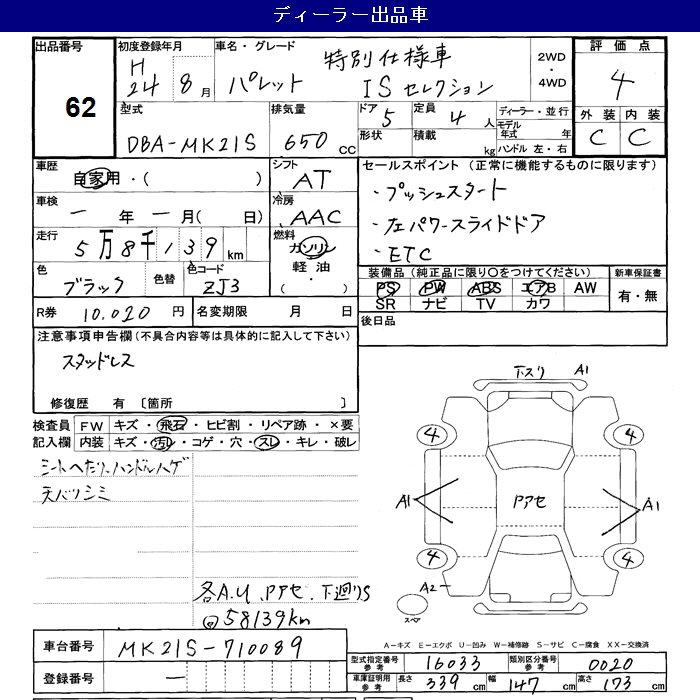 ディーラー出品車
出品番号 初度登録年月 車名・グレード 評価点
62
H 24 8月 パレット 特別仕様車 ISセレクション 2WD・4WD 4
型式 排気量 ドア 5 定員 4人 ディーラー・並行 外装 内装
DBA-MK21S 650cc 形状 積載 kg モデル年式 年 ハンドル 左・右 C C
車歴 自家用・( ) シフト AT セールスポイント (正常に機能するものに限ります)
車検 一年一月( 日) 冷房 AAC ・プッシュスタート
・左パワースライドドア
走行 5万8千139km 燃料 ガソリン・軽油・( ) ・ETC
色 ブラック 色替 色コード ZJ3 装備品 (純正品に限り○をつけてください) 新車保証書
PS PW ABS エアB AW 有・無
SR ナビ TV カワ
R券 10.020円 名変期限 月 日 後日品
注意事項申告欄(不具合内容等は具体的に記入して下さい)
スタッドレス
修復歴 有 〔箇所 〕
検査員 FW キズ・飛石・ヒビ割・リペア跡・×要
記入欄 内装 キズ・汚レ・コゲ・穴・スレ・キレ・破レ
シートへたり、ハンドルハゲ
天バリシミ
下スリ A1
4 4
A1 Pアセ A1
4 4
A2
スペア
各A.U、Pアセ、下廻りS
58139km
A-キズ E-エクボ U-凹み W-補修跡 S-サビ C-腐食 XX-交換済
車台番号 MK21S-710089
型式指定番号 参考 16033 類別区分番号 参考 0020
登録番号 一 車庫証明用 参考 長さ 339cm 幅 147cm 高さ 173cm